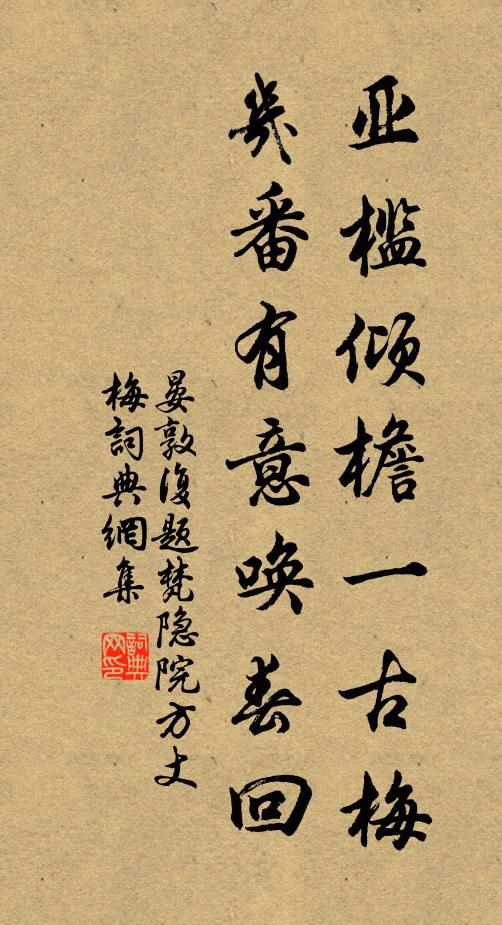 亚槛倾檐一古梅
几番有意唤春回
晏敦復题梵隐院方丈
梅詞典網集
詞典网印